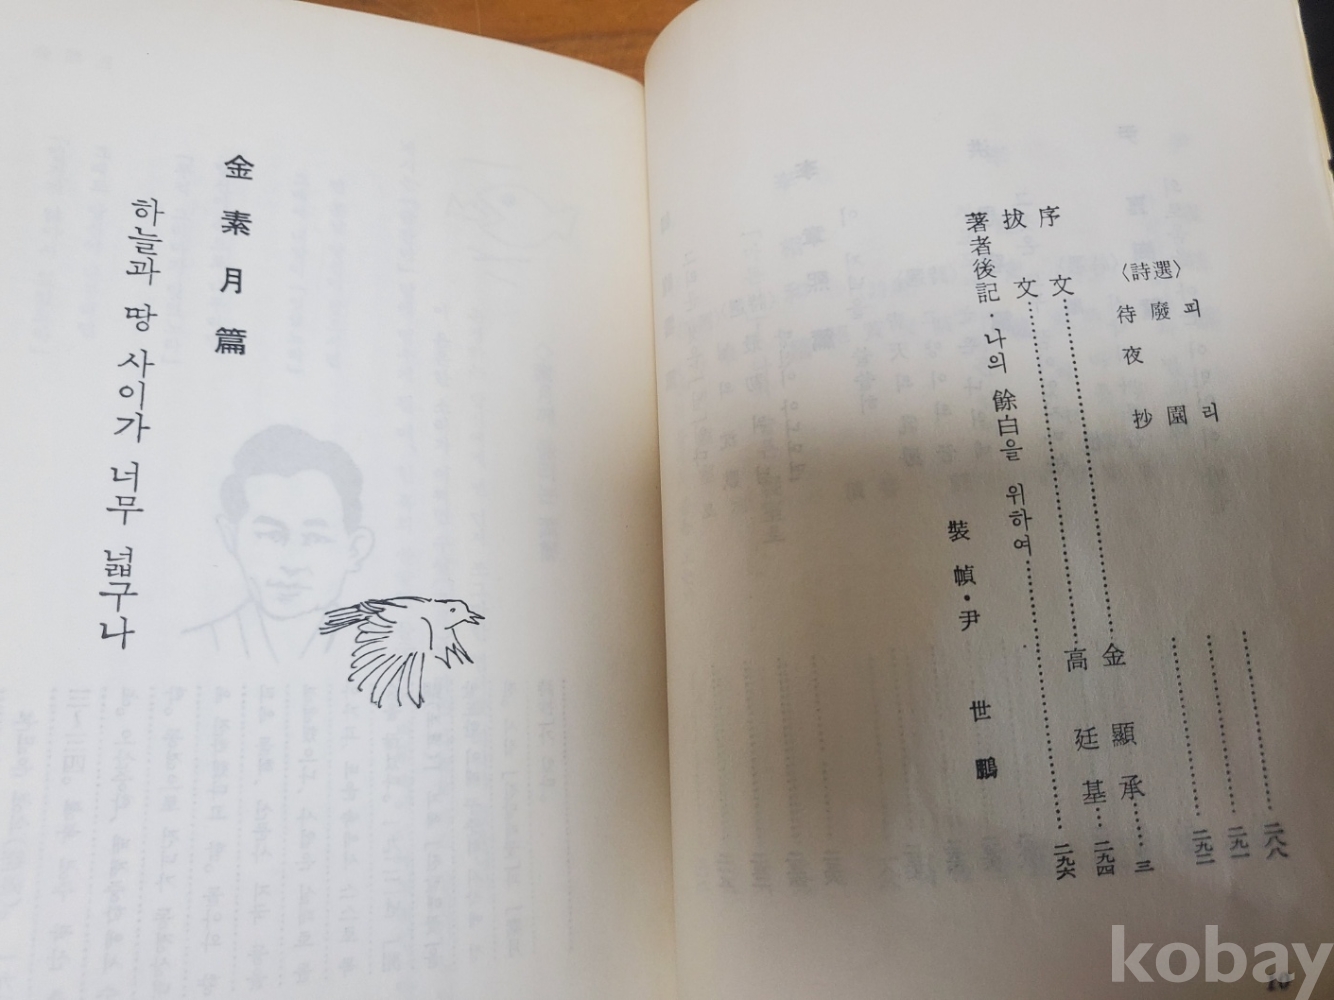 〈詩選〉
피리……二八八
廢園……二九一
待夜抄……二九二
序文……金顯承……三
拔文……高廷基……二九四
著者後記·나의 餘白을 위하여……二九六
裝幀·尹世鵬
10
金素月篇
하늘과 땅 사이가 너무 넓구나
kobay